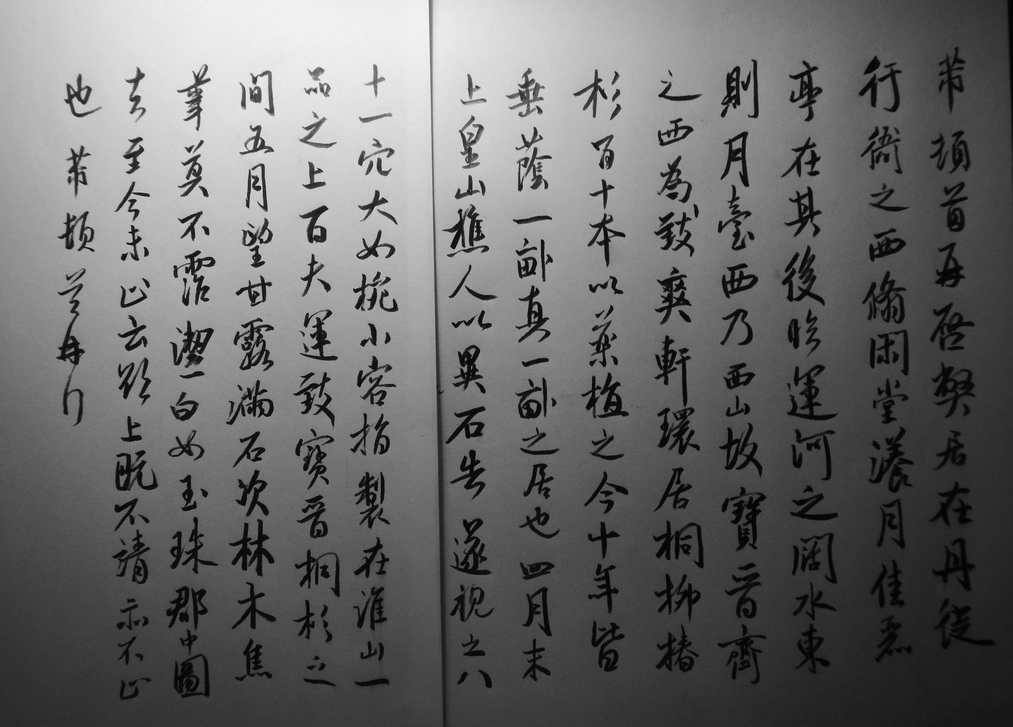 芾頓首再启弊居在丹徒
行衙之西翛閑堂漾月佳丽
亭在其後臨運河之闊水東
則月臺西乃西山故寶晉齋
之西為致爽軒環居桐柳椿
杉百十本以葉植之今十年皆
垂蔭一畝真一畝之居也四月末
上皇山樵人以異石告遂視之八
十一穴大如椀小容指製在淮山一
品之上百夫運致寶晉桐杉之
間五月望甘露滿石次林木焦
葦莫不霑潔白如玉珠郡中圖
去至今未止云欲上既不請亦不止
也芾頓首再行